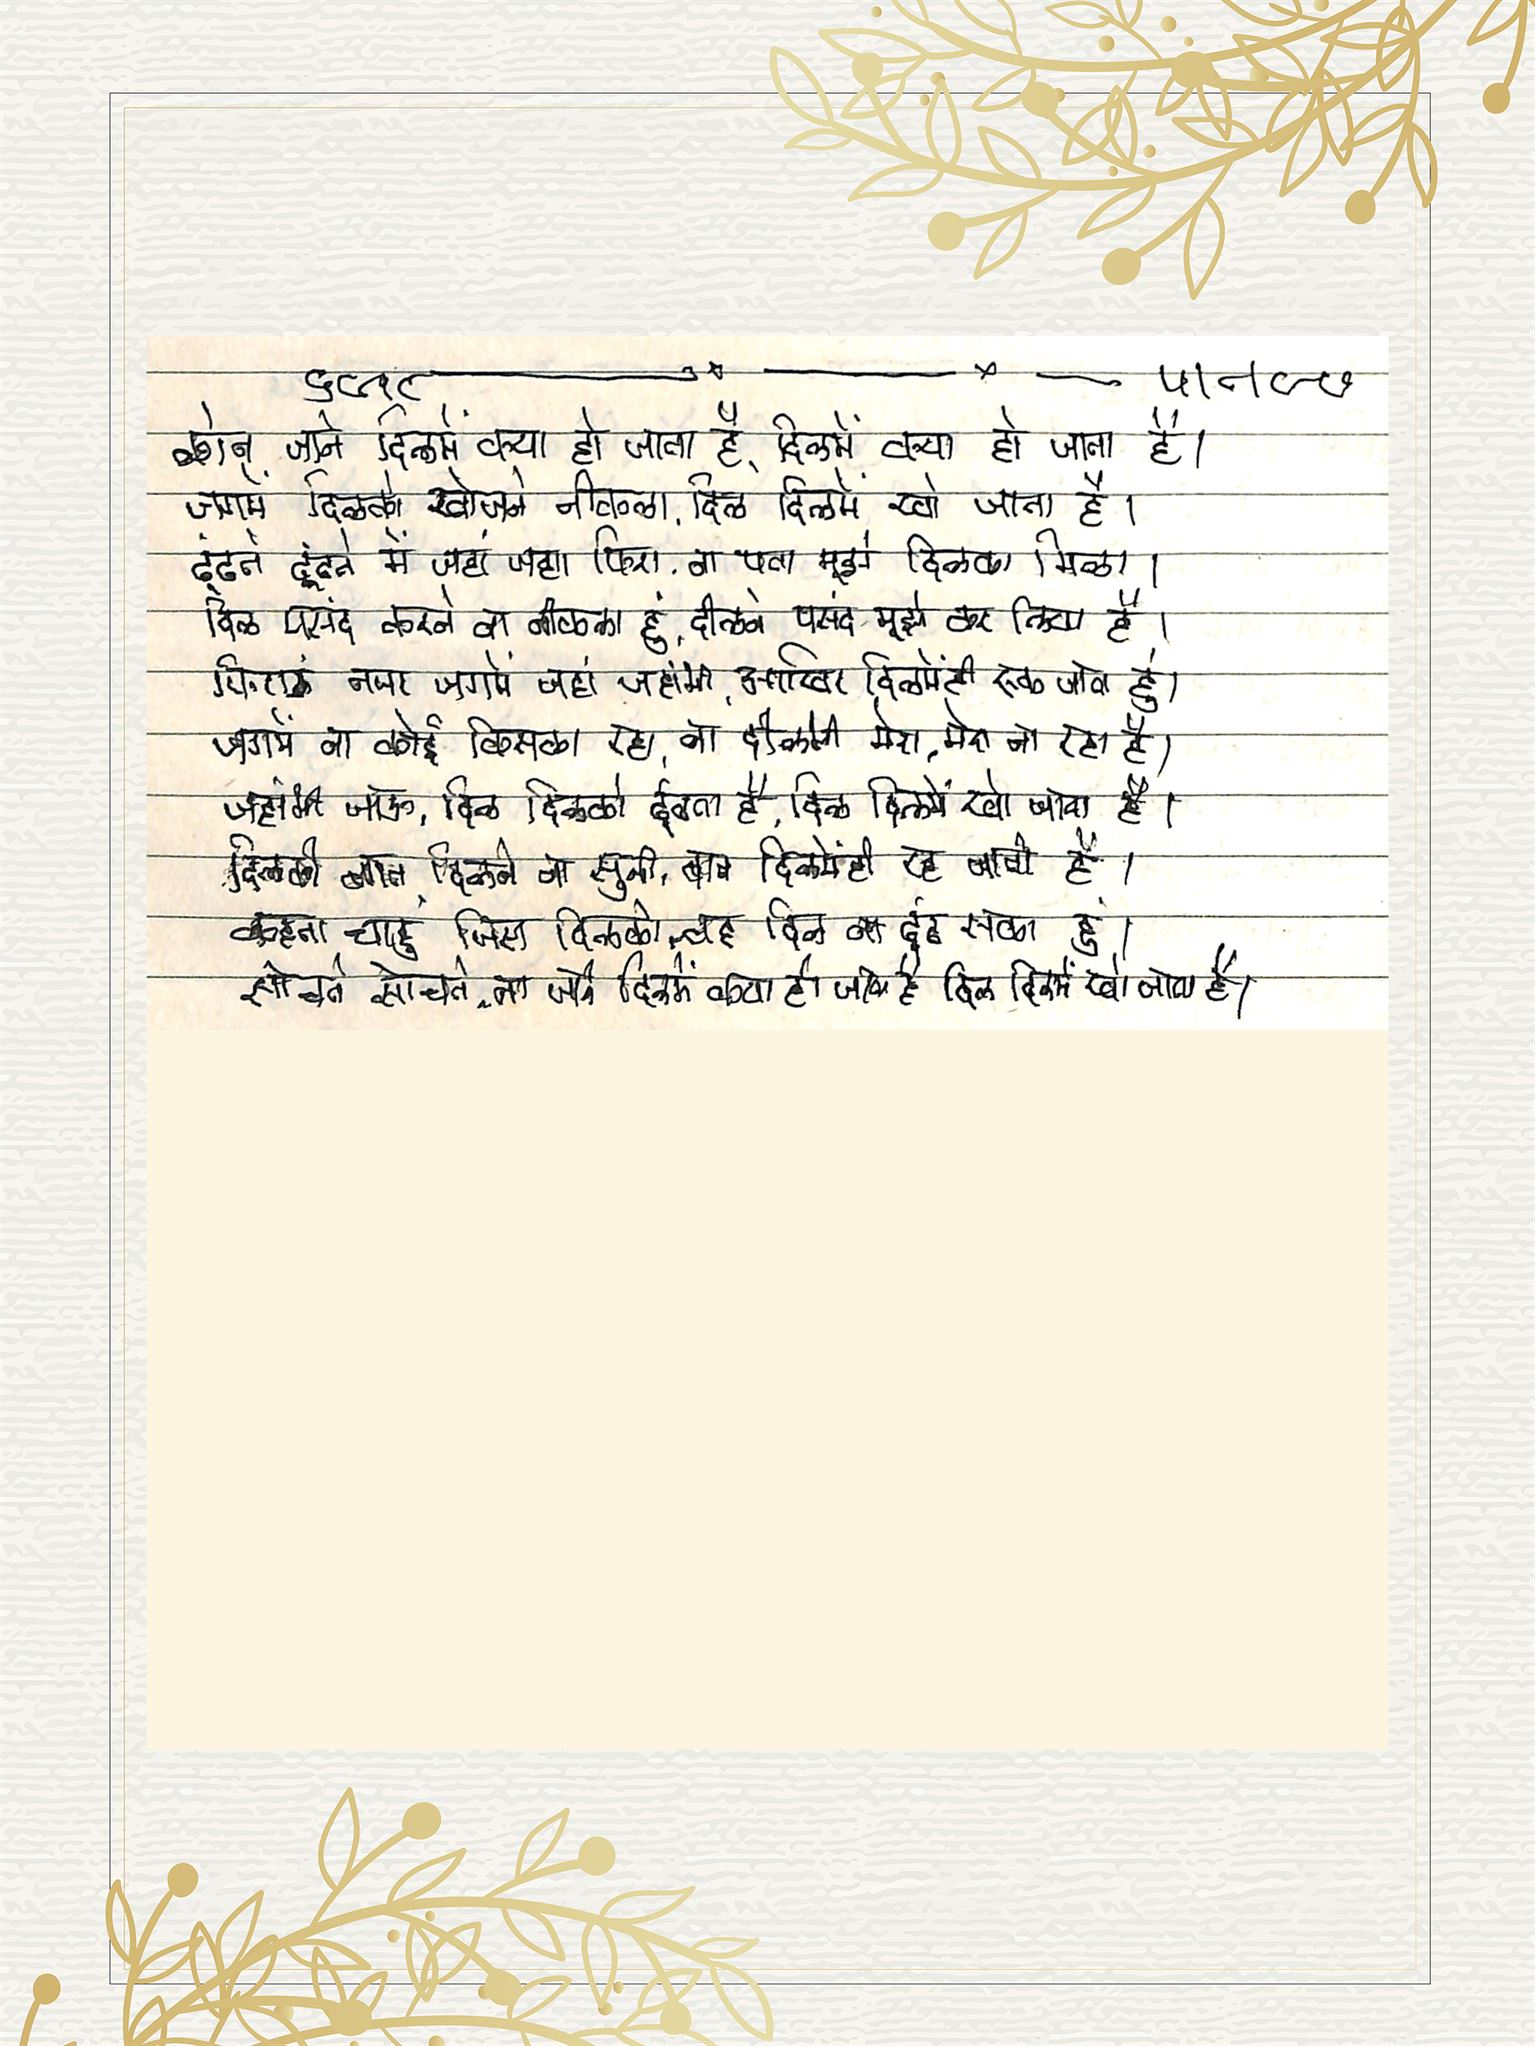 कोन जाने दिलमें क्या हो जाता है, दिलमें क्या हो जाता है।
जगमें दिलको खोजने नीकला, दिल दिलमें खो जाता है।
ढूंढने ढूंढने में जहां जहा फिरा, ना पता मूझे दिलका मिला।
दिल पसंद करने का नीकला हुं, दीलने पसंद मूझे कर लिया है।
फिराके नजर जगमें जहां जहांभी, आखिर दिलमेंही रूक जाता हुं।
जगमें ना कोई किसका रहा, ना दीलभी मेरा, मेरा ना रहा है।
जहांभी जाऊ, दिल दिलको ढूंढता है, दिल दिलमें खो जाता है।
दिलकी बात दिलने ना सुनी, बात दिलमेंही रह जाती है।
कहना चाहुं जिस दिलको, वह दिल ना ढूंढ सका हुं।
सोचते सोचते, ना जाने दिलमें क्या हो जाता है दिल दिलमें खो जाता है।